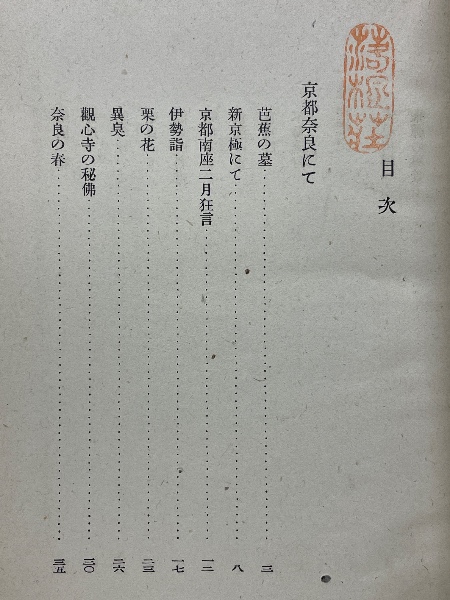 目次
京都奈良にて
芭蕉の墓 三
新京極にて 八
京都南座二月狂言 一二
伊勢詣 一七
栗の花 二三
異臭 二六
觀心寺の秘佛 三〇
奈良の春 三五